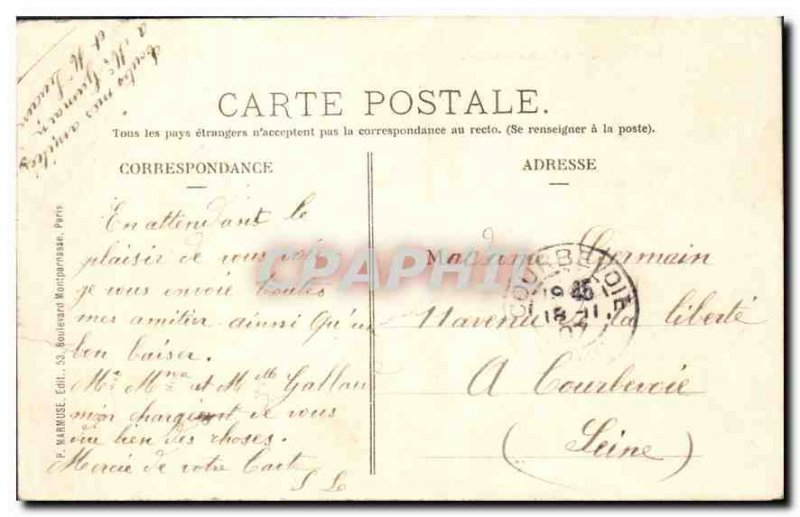 toutes mes amitiés
a Mr Germain
et M
CARTE POSTALE.
Tous les pays étrangers n'acceptent pas la correspondance au recto. (Se renseigner à la poste).
CORRESPONDANCE
En attendant le
plaisir de vous voir
je vous envoie toutes
mes amitier ainni Qu'un
bon baiser.
Mr Mme et Mlle Gallau
m'on chargient de vous
dire bien des choses.
Mercie de votre Cart
P. MARMUSE, Edit., 53, Boulevard Montparnasse, Paris
ADRESSE
Madame Germain
11 avenue de la liberté
A Courbevoie
(Seine)
COURBEVOIE
CPARAMA